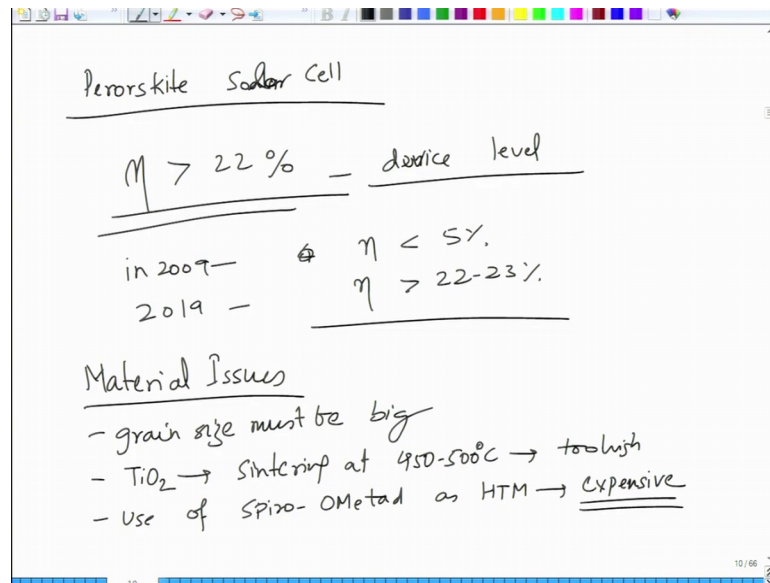 Perorskite Solar Cell
η > 22 % — device level
in 2009 — η < 5%.
2019 — η > 22-23%.
Material Issues
- grain size must be big
- TiO₂ → Sintering at 450-500°C → too high
- Use of Spiro-OMetad as HTM → Expensive
10 / 66